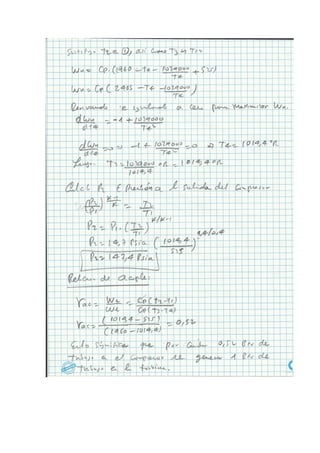 Wn = Cp.(1960 - T4 - 1039000/T4 + 525)
Wn = Cp (2485 - T4 - 1039000/T4)
Derivando e igualando a cero para Maximizar Wn.
dWn/dT4 = -1 + 1039000/T4²
dWn/dT4 = 0 → -1 + 1039000/T4² = 0 → T4 = 1019,4 °R
Luego. T2 = 1039000/1019,4 °R = 1019,4 °R
Presión a la salida del compresor
(P2/P1)^(K-1/K) = T2/T1
P2 = P1.(T2/T1)^(K/K-1)
P2 = 14,7 Psia (1019,4/519)^(1,4/0,4)
P2 = 147,4 Psia
Relación de acople:
rac = Wc/Wt = Cp(T2-T1)/Cp(T3-T4)
rac = (1019,4 - 525)/(1960 - 1019,4) = 0,52
Esto significa que por cada 0,52 Btu de
trabajo en el compresor se genera 1 Btu de
trabajo en la turbina.